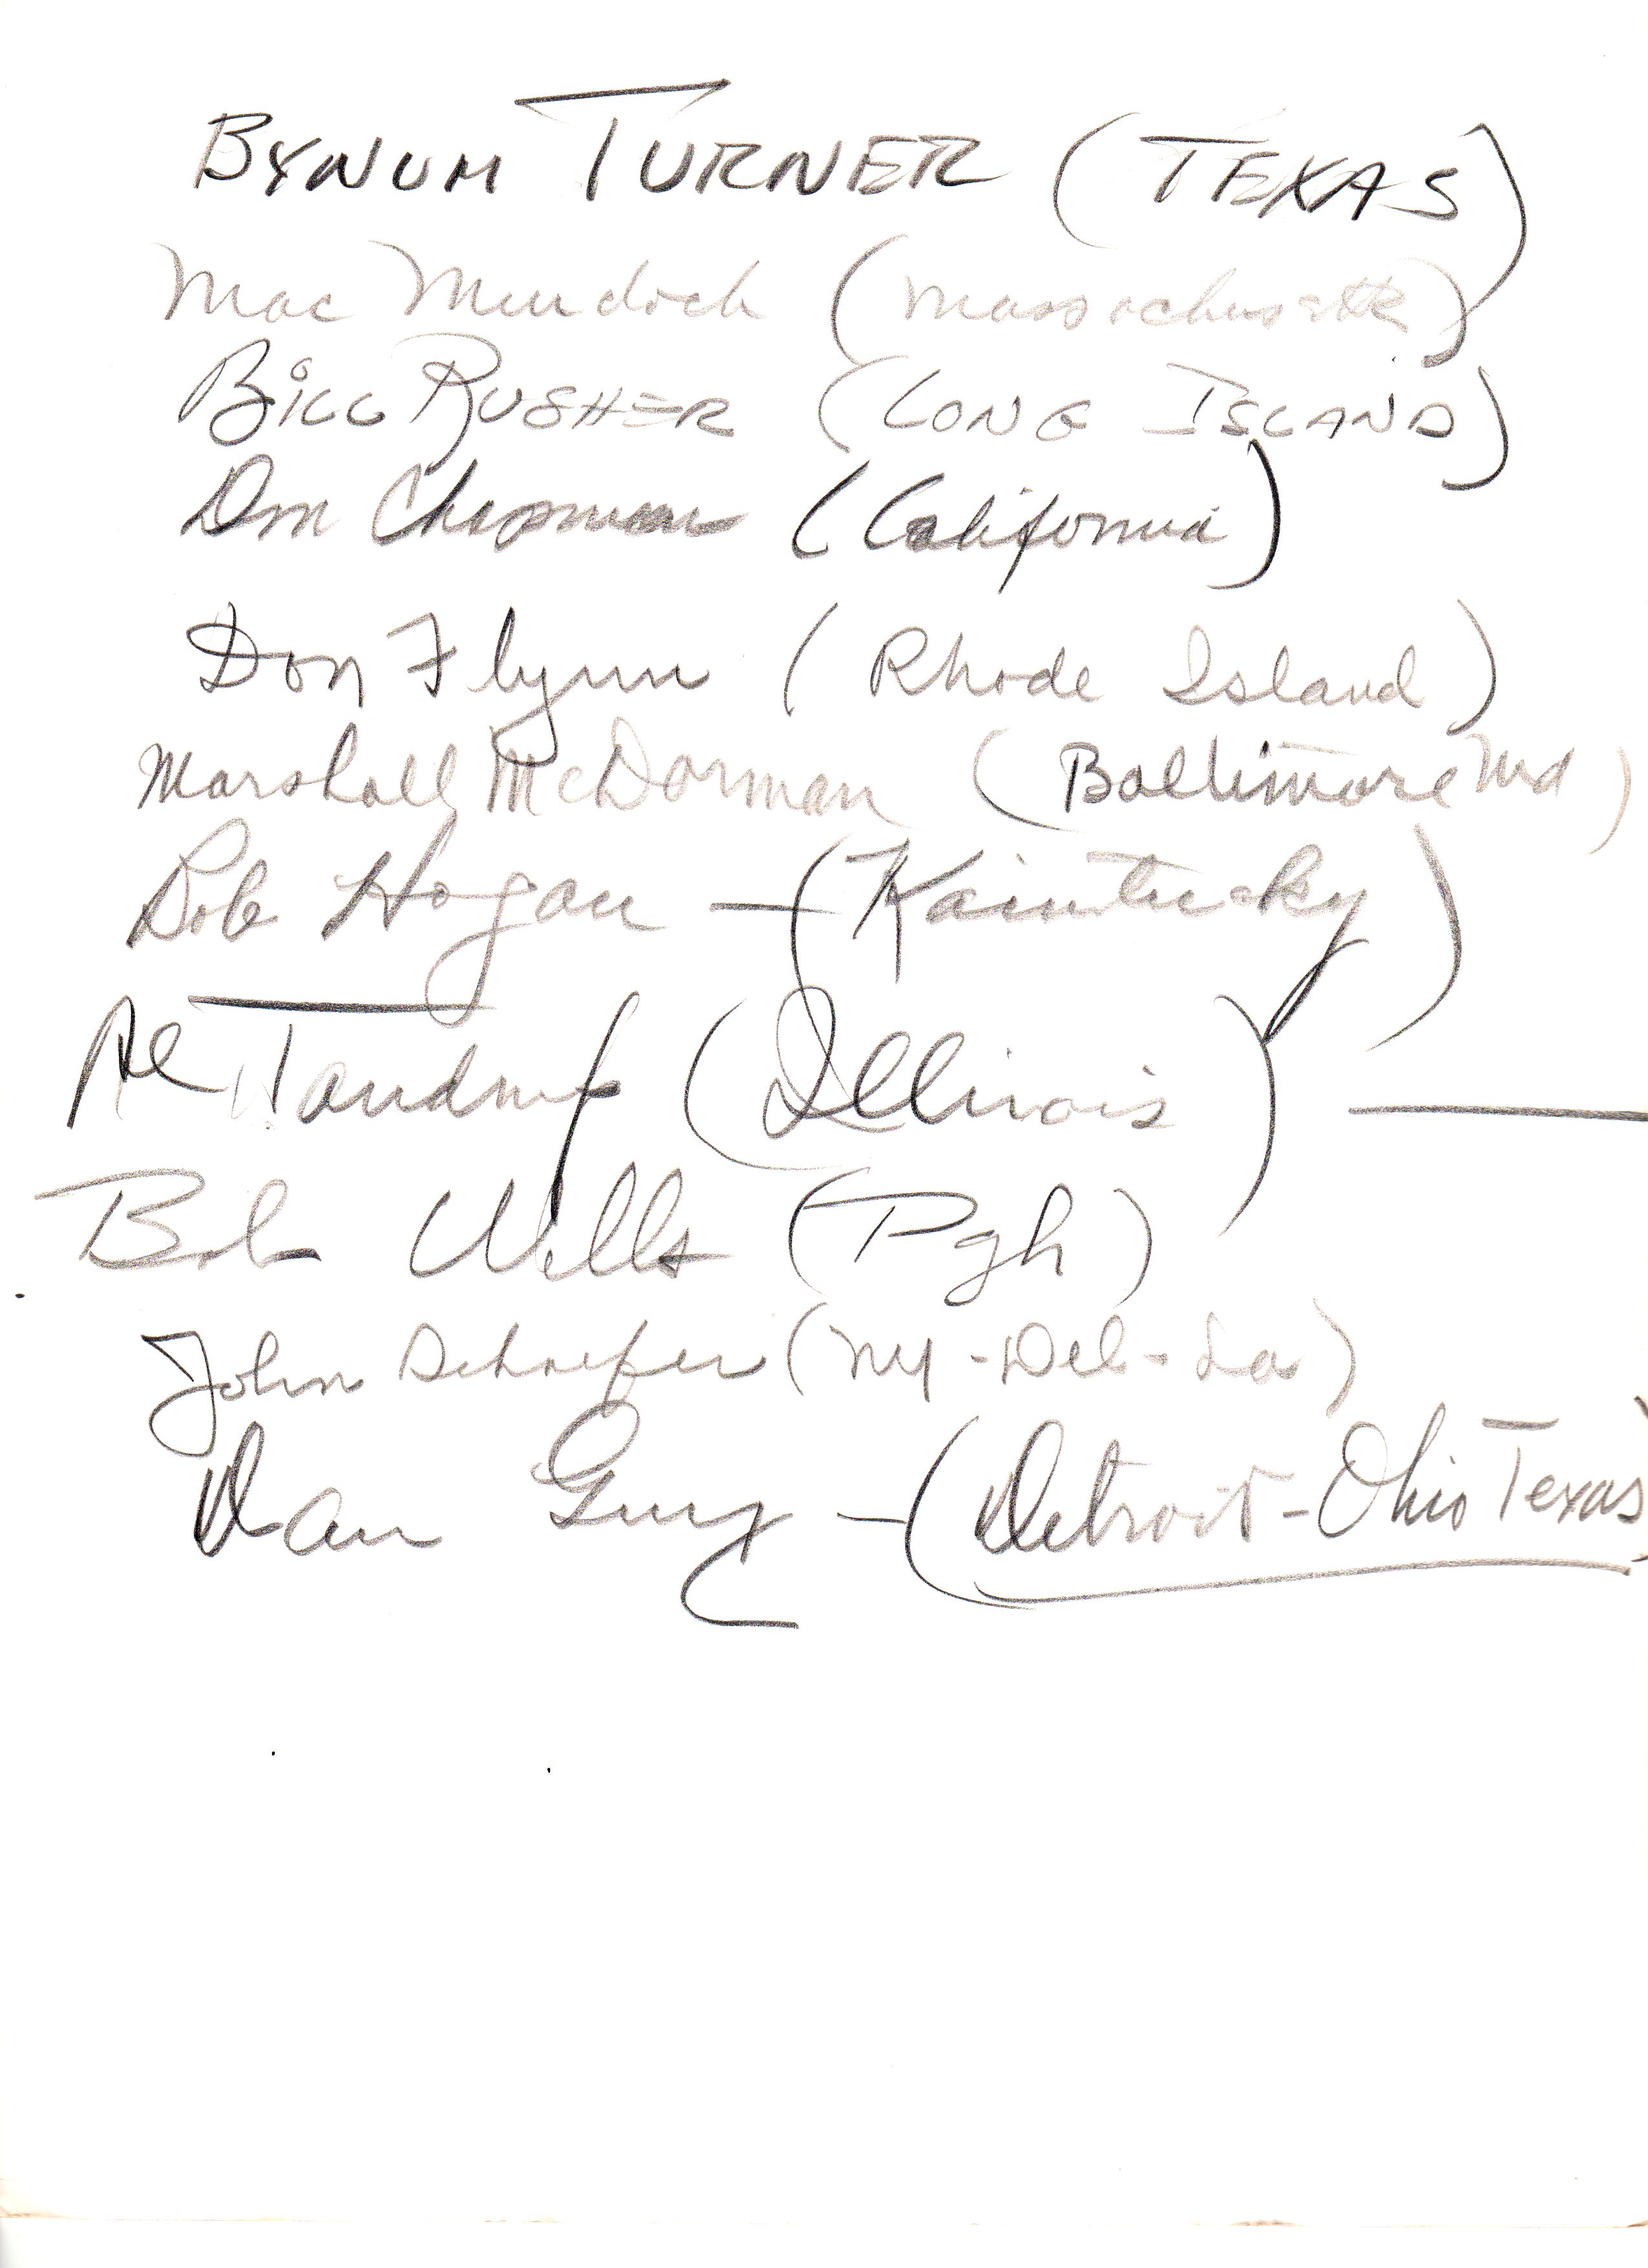 BYNUM TURNER (TEXAS)
Mac Murdoch (Massachusetts)
BILL RUSHER (LONG ISLAND)
Don Chapman (California)
Don Flynn (Rhode Island)
Marshall McDorman (Baltimore Md)
Bob Hogan — (Kaintucky)
Al (Illinois) —
Bob Wells (Pgh)
John Schaefer (NY - Del - La)
Dan — (Detroit - Ohio Texas)